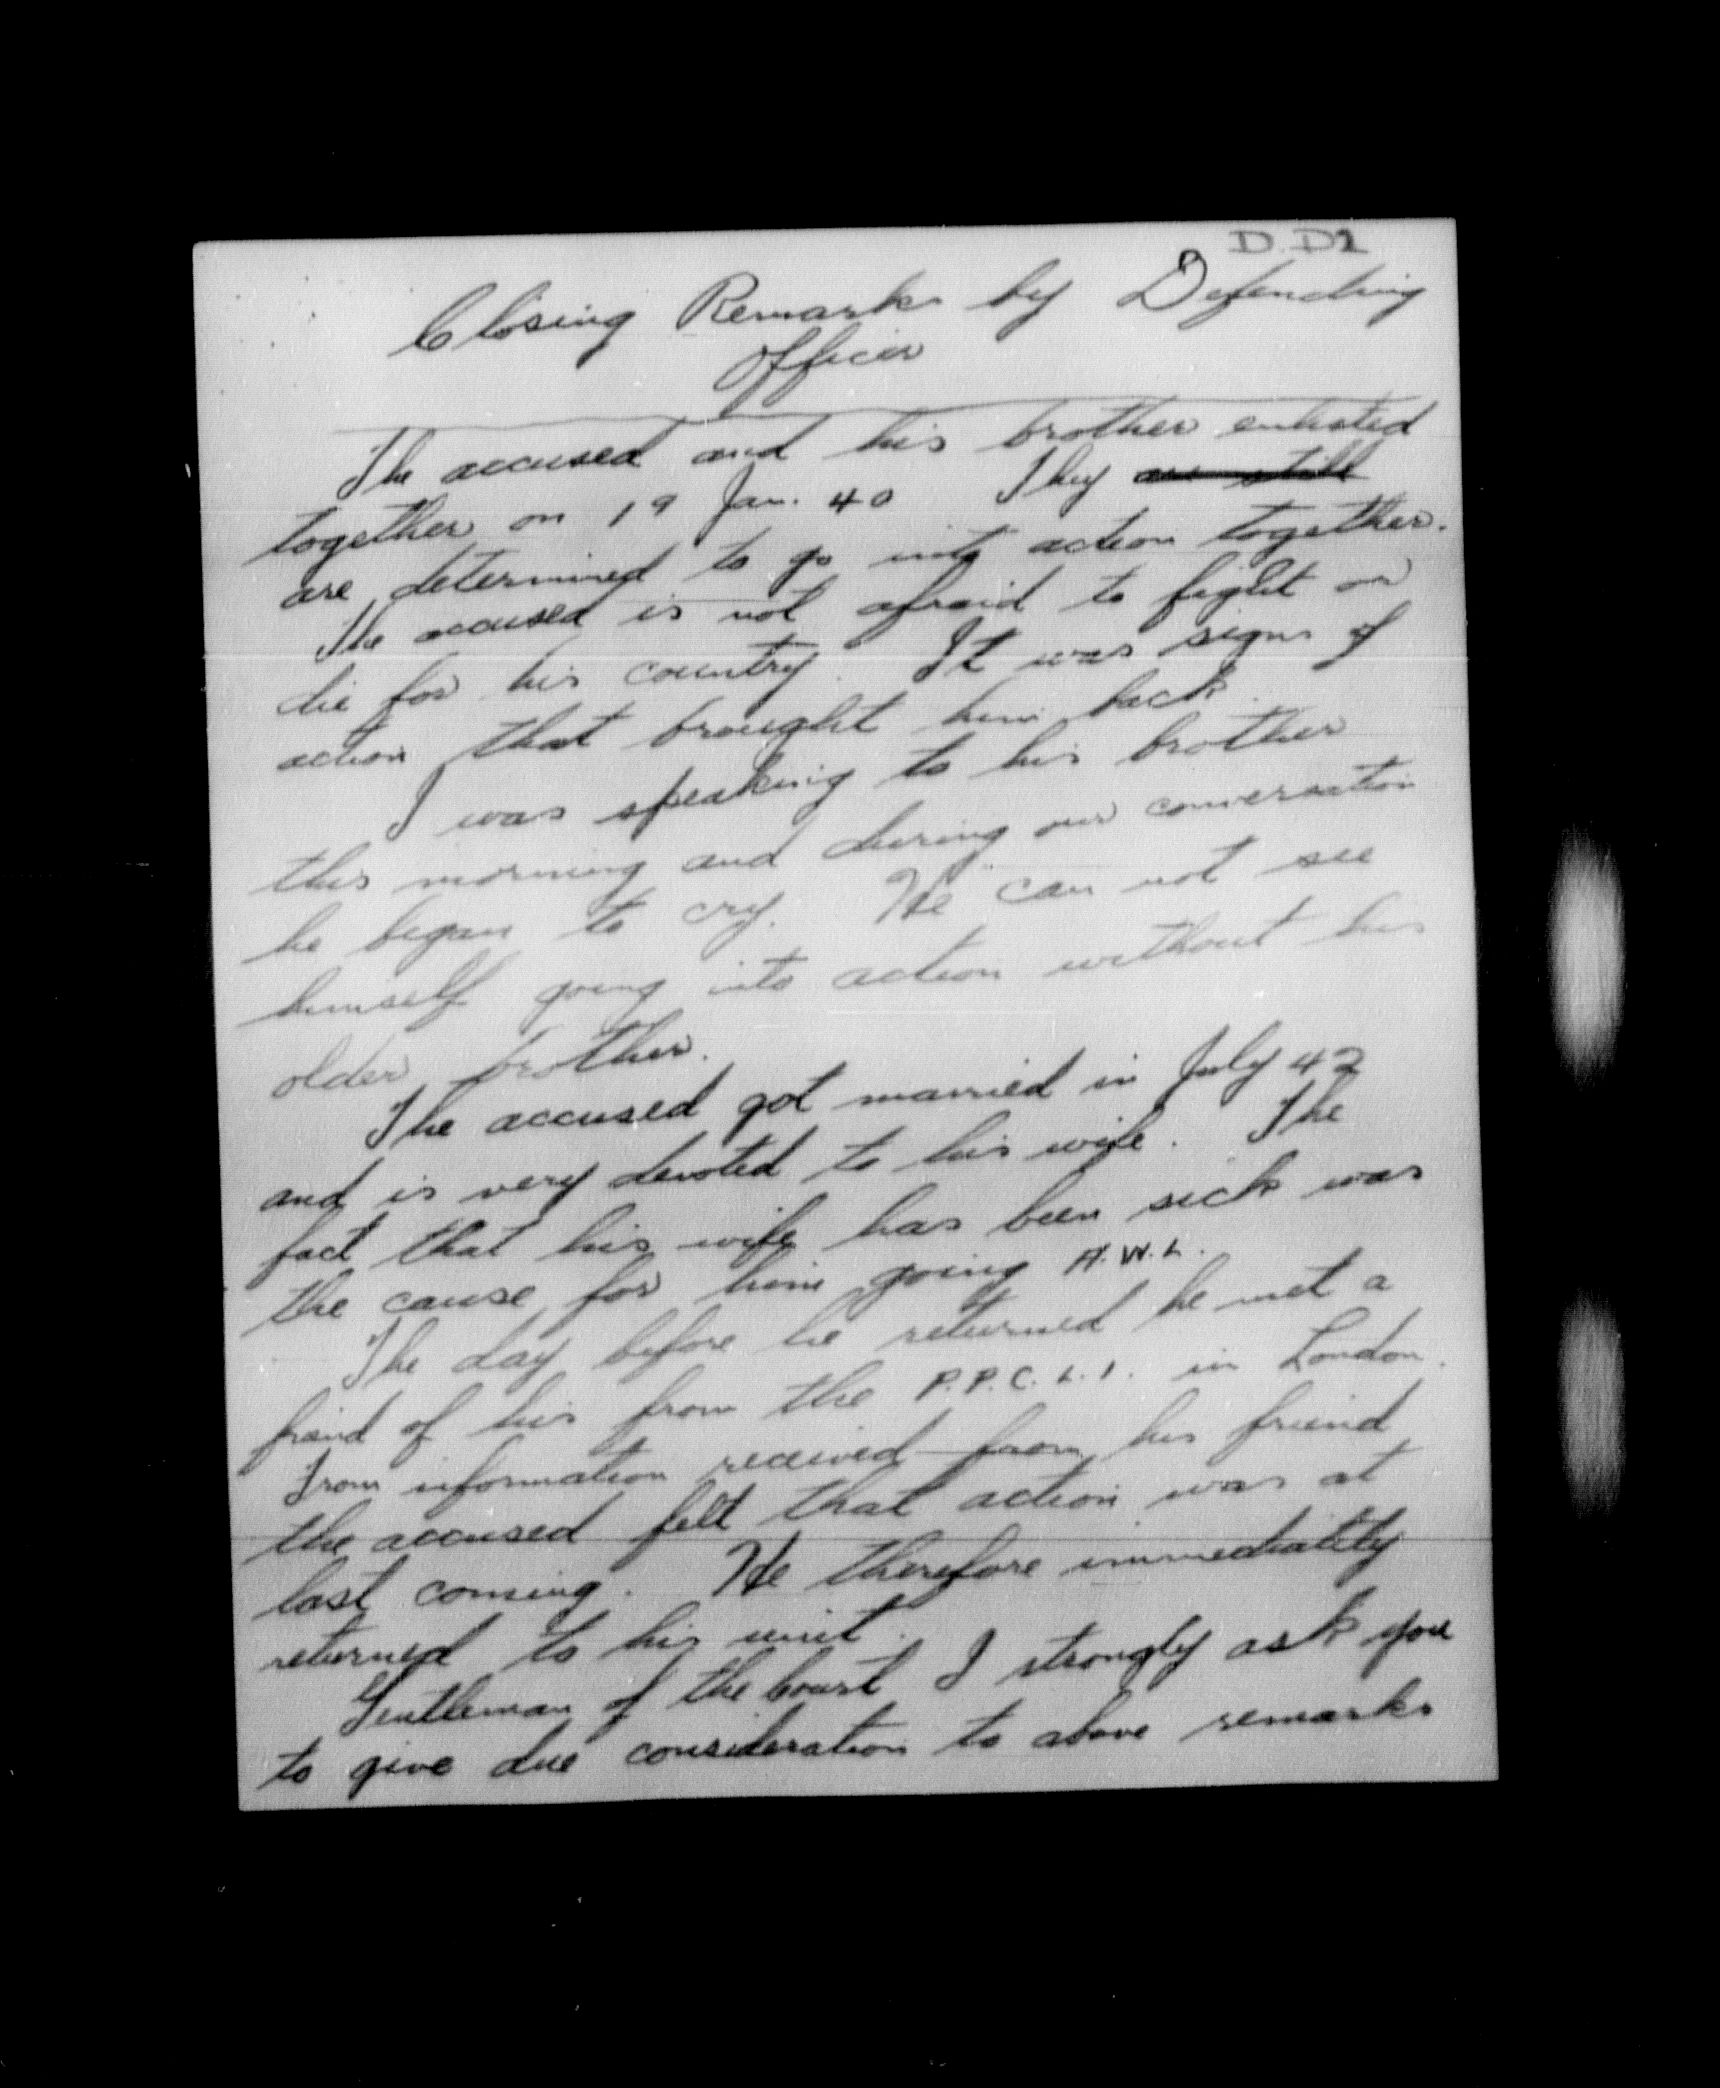 D.D1
Closing Remarks by Defending
Officer
The accused and his brother enlisted
together on 19 Jan. 40 They are still
are determined to go into action together.
The accused is not afraid to fight or
die for his country. It was signs of
action that brought him back.
I was speaking to his brother
this morning and during our conversation
he began to cry. He can not see
himself going into action without his
older brother.
The accused got married in July 42
and is very devoted to his wife. The
fact that his wife has been sick was
the cause for him going A.W.L.
The day before he returned he met a
friend of his from the P.P.C.L.I. in London.
From information received from his friend
the accused felt that action was at
last coming. He therefore immediately
returned to his unit.
Gentleman of the Court I strongly ask you
to give due consideration to above remarks